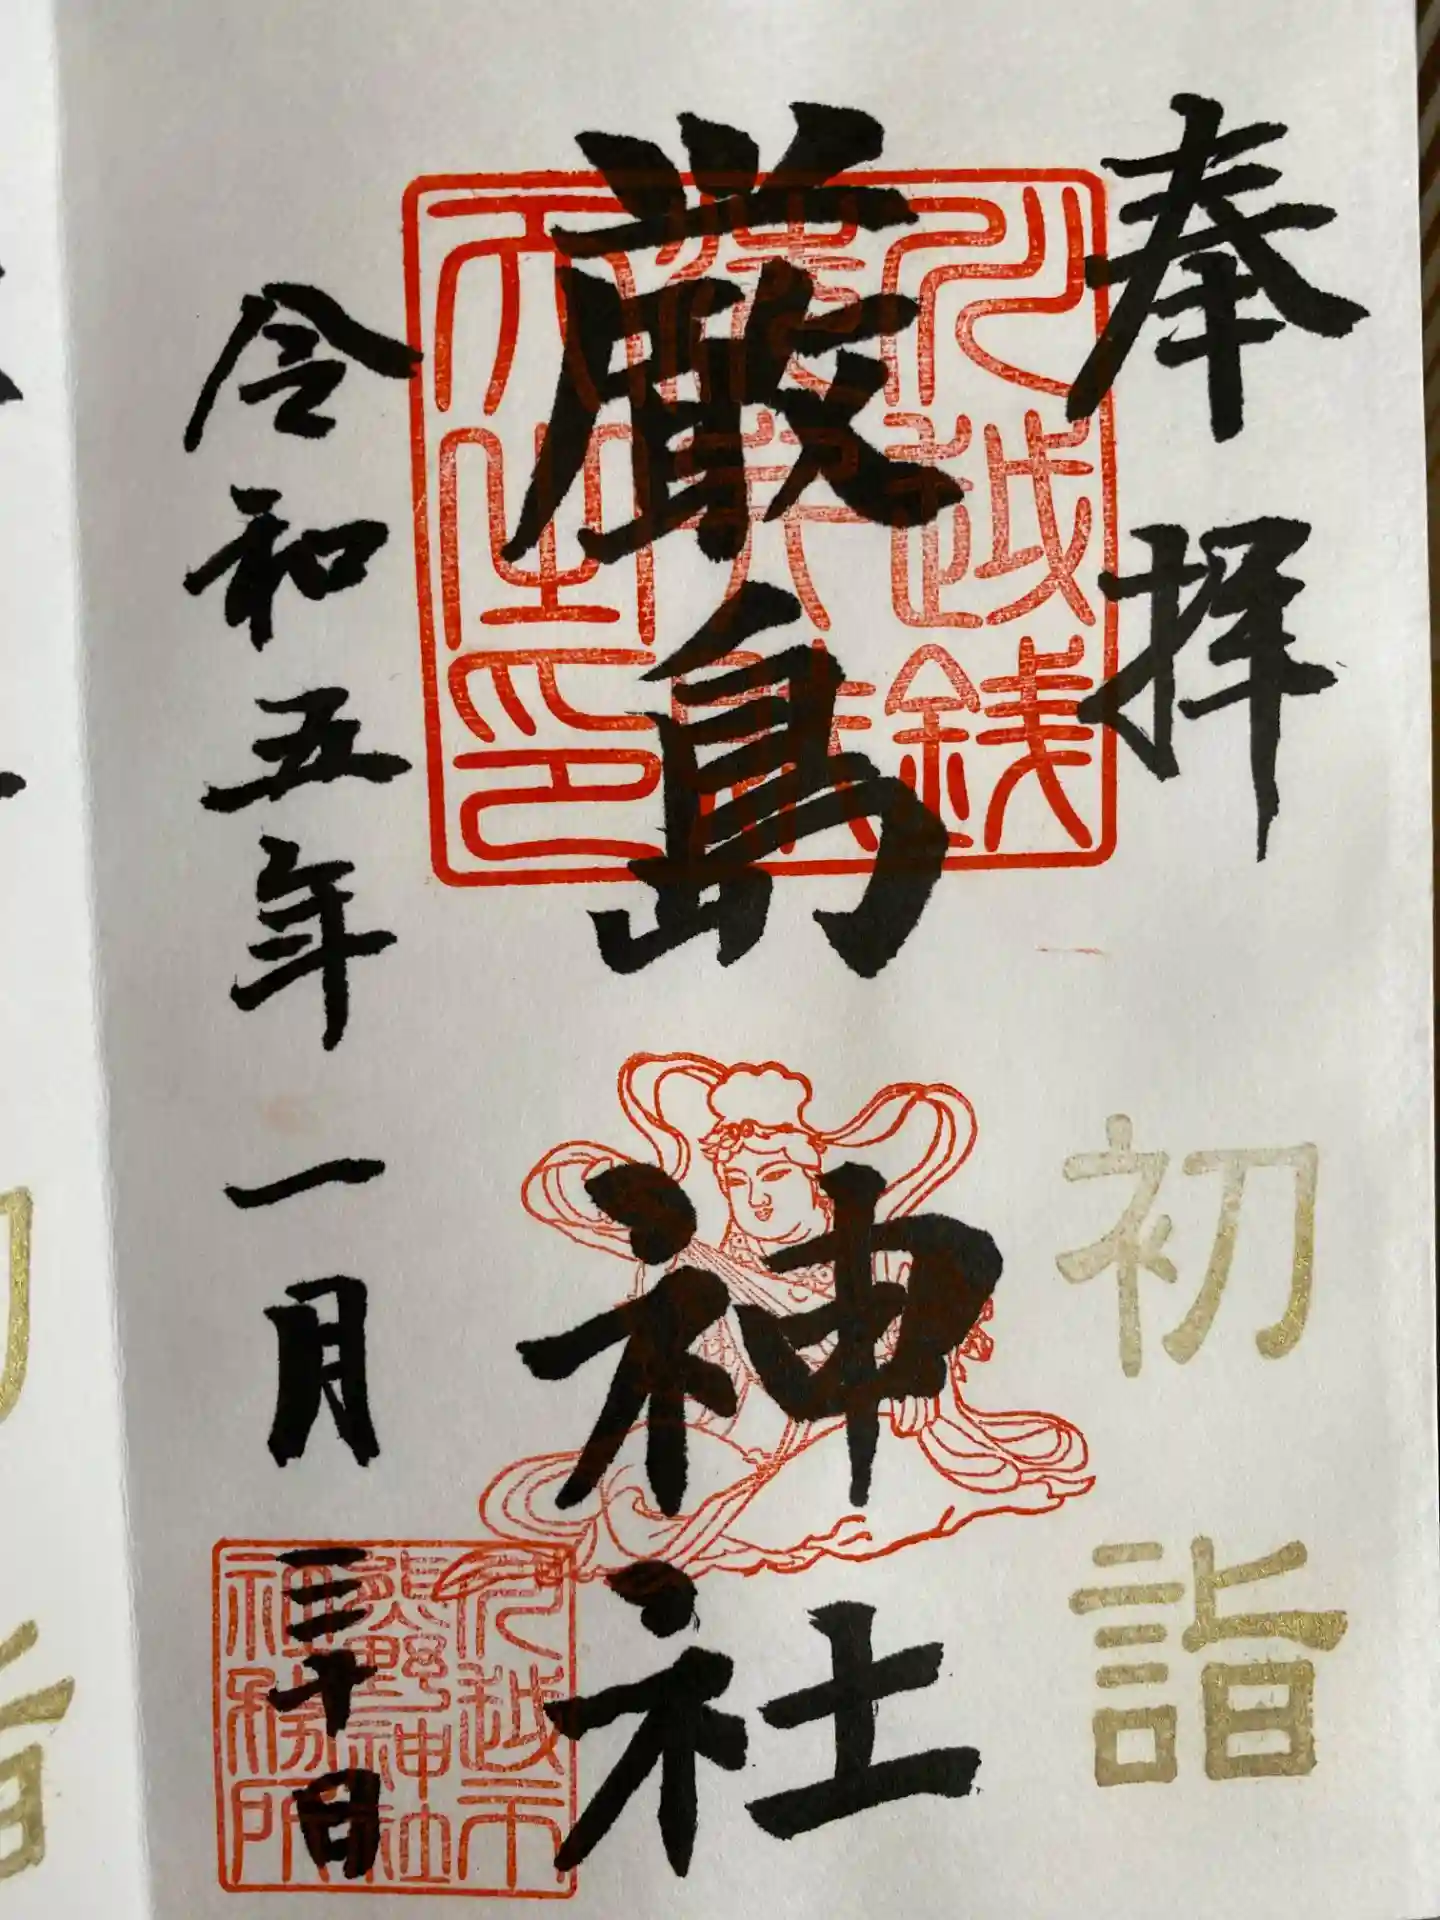 奉拝
初詣
厳島神社
令和五年一月三十日
川越銭
洗弁財
天之印
川越市
熊野神社
社務所